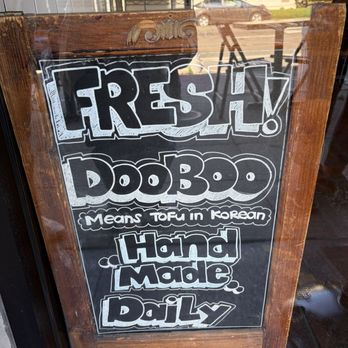 FRESH!
DOOBOO
Means Tofu in Korean
"Hand
Made"
Daily